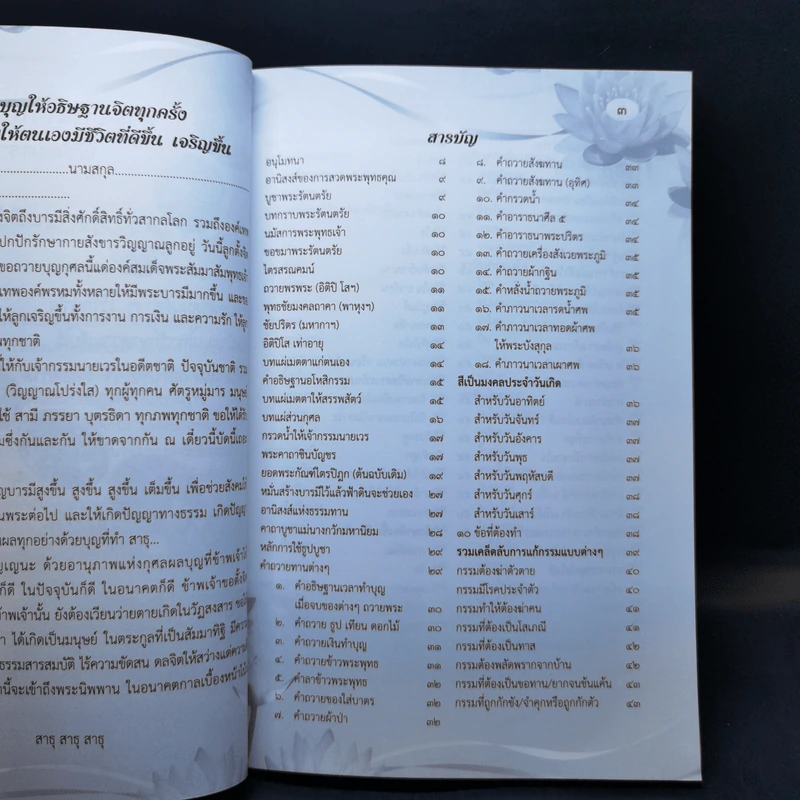 บุญให้อธิษฐานจิตทุกครั้ง
ให้ตนเองมีชีวิตที่ดีขึ้น เจริญขึ้น
นามสกุล
จิตถึงบารมีสิ่งศักดิ์สิทธิ์ทั่วสากลโลก รวมถึงองค์เทพ
ปกปักรักษากายสังขารวิญญาณลูกอยู่ วันนี้ลูกตั้งจิต
ขอถวายบุญกุศลนี้แด่องค์สมเด็จพระสัมมาสัมพุทธเจ้า
เทพองค์พรหมทั้งหลายให้มีพระบารมีมากขึ้น และขอ
ให้ลูกเจริญขึ้นทั้งการงาน การเงิน และความรัก ให้ลูก
ทุกชาติ
ให้กับเจ้ากรรมนายเวรในอดีตชาติ ปัจจุบันชาติ
(วิญญาณโปร่งใส) ทุกผู้ทุกคน ศัตรูหมู่มาร มนุษย์
ใช้ สามี ภรรยา บุตรธิดา ทุกภพทุกชาติ ขอให้ได้รับ
ซึ่งกันและกัน ให้ขาดจากกัน ณ เดี๋ยวนี้บัดนี้เถอะ
บารมีสูงขึ้น สูงขึ้น สูงขึ้น เต็มขึ้น เพื่อช่วยสังคมให้
พระต่อไป และให้เกิดปัญญาทางธรรม เกิดปัญญา
ผลทุกอย่างด้วยบุญที่ทำ สาธุ...
ด้วยอานุภาพแห่งกุศลผลบุญที่ข้าพเจ้าได้
ก็ดี ในปัจจุบันก็ดี ในอนาคตก็ดี ข้าพเจ้าขอตั้งจิต
ข้าพเจ้านั้น ยังต้องเวียนว่ายตายเกิดในวัฏสงสาร ขอให้
ได้เกิดเป็นมนุษย์ ในตระกูลที่เป็นสัมมาทิฐิ มีความ
ธรรมสารสมบัติ ไร้ความขัดสน ดลจิตให้สว่างแต่ความดี
นี้จะเข้าถึงพระนิพพาน ในอนาคตกาลเบื้องหน้าโน้น
สาธุ สาธุ สาธุ
๓
สารบัญ
อนุโมทนา ๘
อานิสงส์ของการสวดพระพุทธคุณ ๙
บูชาพระรัตนตรัย ๙
บทกราบพระรัตนตรัย ๑๐
นมัสการพระพุทธเจ้า ๑๐
ขอขมาพระรัตนตรัย ๑๐
ไตรสรณคมน์ ๑๐
ถวายพรพระ (อิติปิ โสฯ) ๑๑
พุทธชัยมงคลคาถา (พาหุงฯ) ๑๑
ชัยปริตร (มหากาฯ) ๑๓
อิติปิโส เท่าอายุ ๑๔
บทแผ่เมตตาแก่ตนเอง ๑๔
คำอธิษฐานอโหสิกรรม ๑๕
บทแผ่เมตตาให้สรรพสัตว์ ๑๕
บทแผ่ส่วนกุศล ๑๖
กรวดน้ำให้เจ้ากรรมนายเวร ๑๗
พระคาถาชินบัญชร ๑๗
ยอดพระกัณฑ์ไตรปิฎก (ต้นฉบับเดิม) ๑๙
หมั่นสร้างบารมีไว้แล้วฟ้าดินจะช่วยเอง ๒๗
อานิสงส์แห่งธรรมทาน ๒๗
คาถาบูชาแม่นางกวักมหานิยม ๒๘
หลักการใช้ธูปบูชา ๒๙
คำถวายทานต่างๆ ๒๙
๑. คำอธิษฐานเวลาทำบุญ
เมื่อจบของต่างๆ ถวายพระ ๓๐
๒. คำถวาย ธูป เทียน ดอกไม้ ๓๐
๓. คำถวายเงินทำบุญ ๓๑
๔. คำถวายข้าวพระพุทธ ๓๑
๕. คำลาข้าวพระพุทธ ๓๒
๖. คำถวายของใส่บาตร ๓๒
๗. คำถวายผ้าป่า ๓๒
๘. คำถวายสังฆทาน ๓๓
๙. คำถวายสังฆทาน (อุทิศ) ๓๓
๑๐. คำกรวดน้ำ ๓๔
๑๑. คำอาราธนาศีล ๕ ๓๔
๑๒. คำอาราธนาพระปริตร ๓๔
๑๓. คำถวายเครื่องสังเวยพระภูมิ ๓๕
๑๔. คำถวายผ้ากฐิน ๓๕
๑๕. คำหลั่งน้ำถวายพระภูมิ ๓๕
๑๖. คำภาวนาเวลารดน้ำศพ ๓๕
๑๗. คำภาวนาเวลาทอดผ้าศพ
ให้พระบังสุกุล ๓๖
๑๘. คำภาวนาเวลาเผาศพ ๓๖
สีเป็นมงคลประจำวันเกิด
สำหรับวันอาทิตย์ ๓๖
สำหรับวันจันทร์ ๓๗
สำหรับวันอังคาร ๓๗
สำหรับวันพุธ ๓๗
สำหรับวันพฤหัสบดี ๓๗
สำหรับวันศุกร์ ๓๘
สำหรับวันเสาร์ ๓๘
๑๐ ข้อที่ต้องทำ ๓๘
รวมเคล็ดลับการแก้กรรมแบบต่างๆ ๓๙
กรรมต้องฆ่าตัวตาย ๔๐
กรรมมีโรคประจำตัว ๔๐
กรรมทำให้ต้องฆ่าคน ๔๑
กรรมที่ต้องเป็นโสเภณี ๔๑
กรรมที่ต้องเป็นทาส ๔๒
กรรมต้องพลัดพรากจากบ้าน ๔๒
กรรมที่ต้องเป็นขอทาน/ยากจนข้นแค้น ๔๓
กรรมที่ถูกกักขัง/จำคุกหรือถูกกักตัว ๔๓